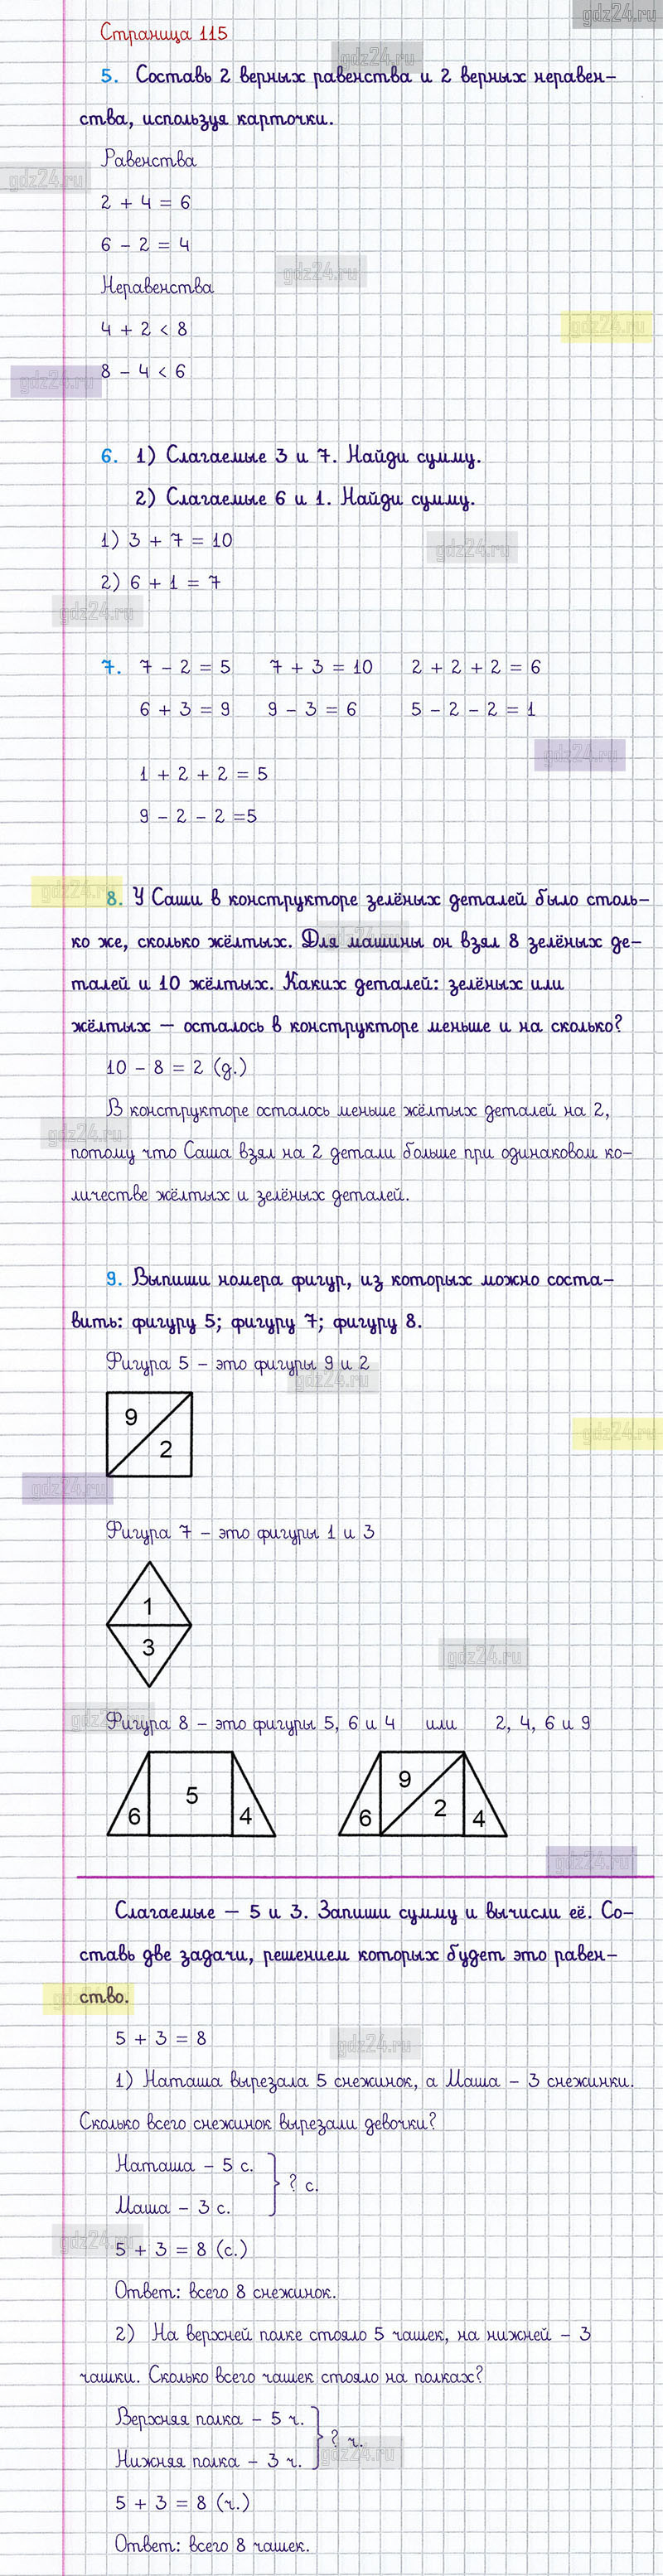 gdz24.ru
Страница 115
gdz24.ru
5. Составь 2 верных равенства и 2 верных неравен-
ства, используя карточки.
Равенства
gdz24.ru
2 + 4 = 6
6 - 2 = 4
gdz24.ru
Неравенства
4 + 2 < 8
gdz24.ru
8 - 4 < 6
gdz24.ru
6. 1) Слагаемые 3 и 7. Найди сумму.
2) Слагаемые 6 и 1. Найди сумму.
1) 3 + 7 = 10
gdz24.ru
2) 6 + 1 = 7
gdz24.ru
7. 7 - 2 = 5 7 + 3 = 10 2 + 2 + 2 = 6
6 + 3 = 9 9 - 3 = 6 5 - 2 - 2 = 1
gdz24.ru
1 + 2 + 2 = 5
9 - 2 - 2 =5
gdz24.ru
8. У Саши в конструкторе зелёных деталей было столь-
ко же, сколько жёлтых. Для машины он взял 8 зелёных де-
gdz24.ru
талей и 10 жёлтых. Каких деталей: зелёных или
жёлтых — осталось в конструкторе меньше и на сколько?
10 - 8 = 2 (д.)
В конструкторе осталось меньше жёлтых деталей на 2,
gdz24.ru
потому что Саша взял на 2 детали больше при одинаковом ко-
личестве жёлтых и зелёных деталей.
9. Выпиши номера фигур, из которых можно соста-
вить: фигуру 5; фигуру 7; фигуру 8.
Фигура 5 - это фигуры 9 и 2
gdz24.ru
9
2
gdz24.ru
gdz24.ru
Фигура 7 - это фигуры 1 и 3
1
3
gdz24.ru
gdz24.ru
Фигура 8 - это фигуры 5, 6 и 4 или 2, 4, 6 и 9
6 5 4
6 9 2 4
gdz24.ru
Слагаемые — 5 и 3. Запиши сумму и вычисли её. Со-
ставь две задачи, решением которых будет это равен-
ство.
gdz24.ru
5 + 3 = 8
gdz24.ru
1) Наташа вырезала 5 снежинок, а Маша - 3 снежинки.
Сколько всего снежинок вырезали девочки?
Наташа - 5 с.
? с.
Маша - 3 с.
gdz24.ru
5 + 3 = 8 (с.)
Ответ: всего 8 снежинок.
2) На верхней полке стояло 5 чашек, на нижней - 3
чашки. Сколько всего чашек стояло на полках?
Верхняя полка - 5 ч.
? ч.
gdz24.ru
Нижняя полка - 3 ч.
5 + 3 = 8 (ч.)
Ответ: всего 8 чашек.